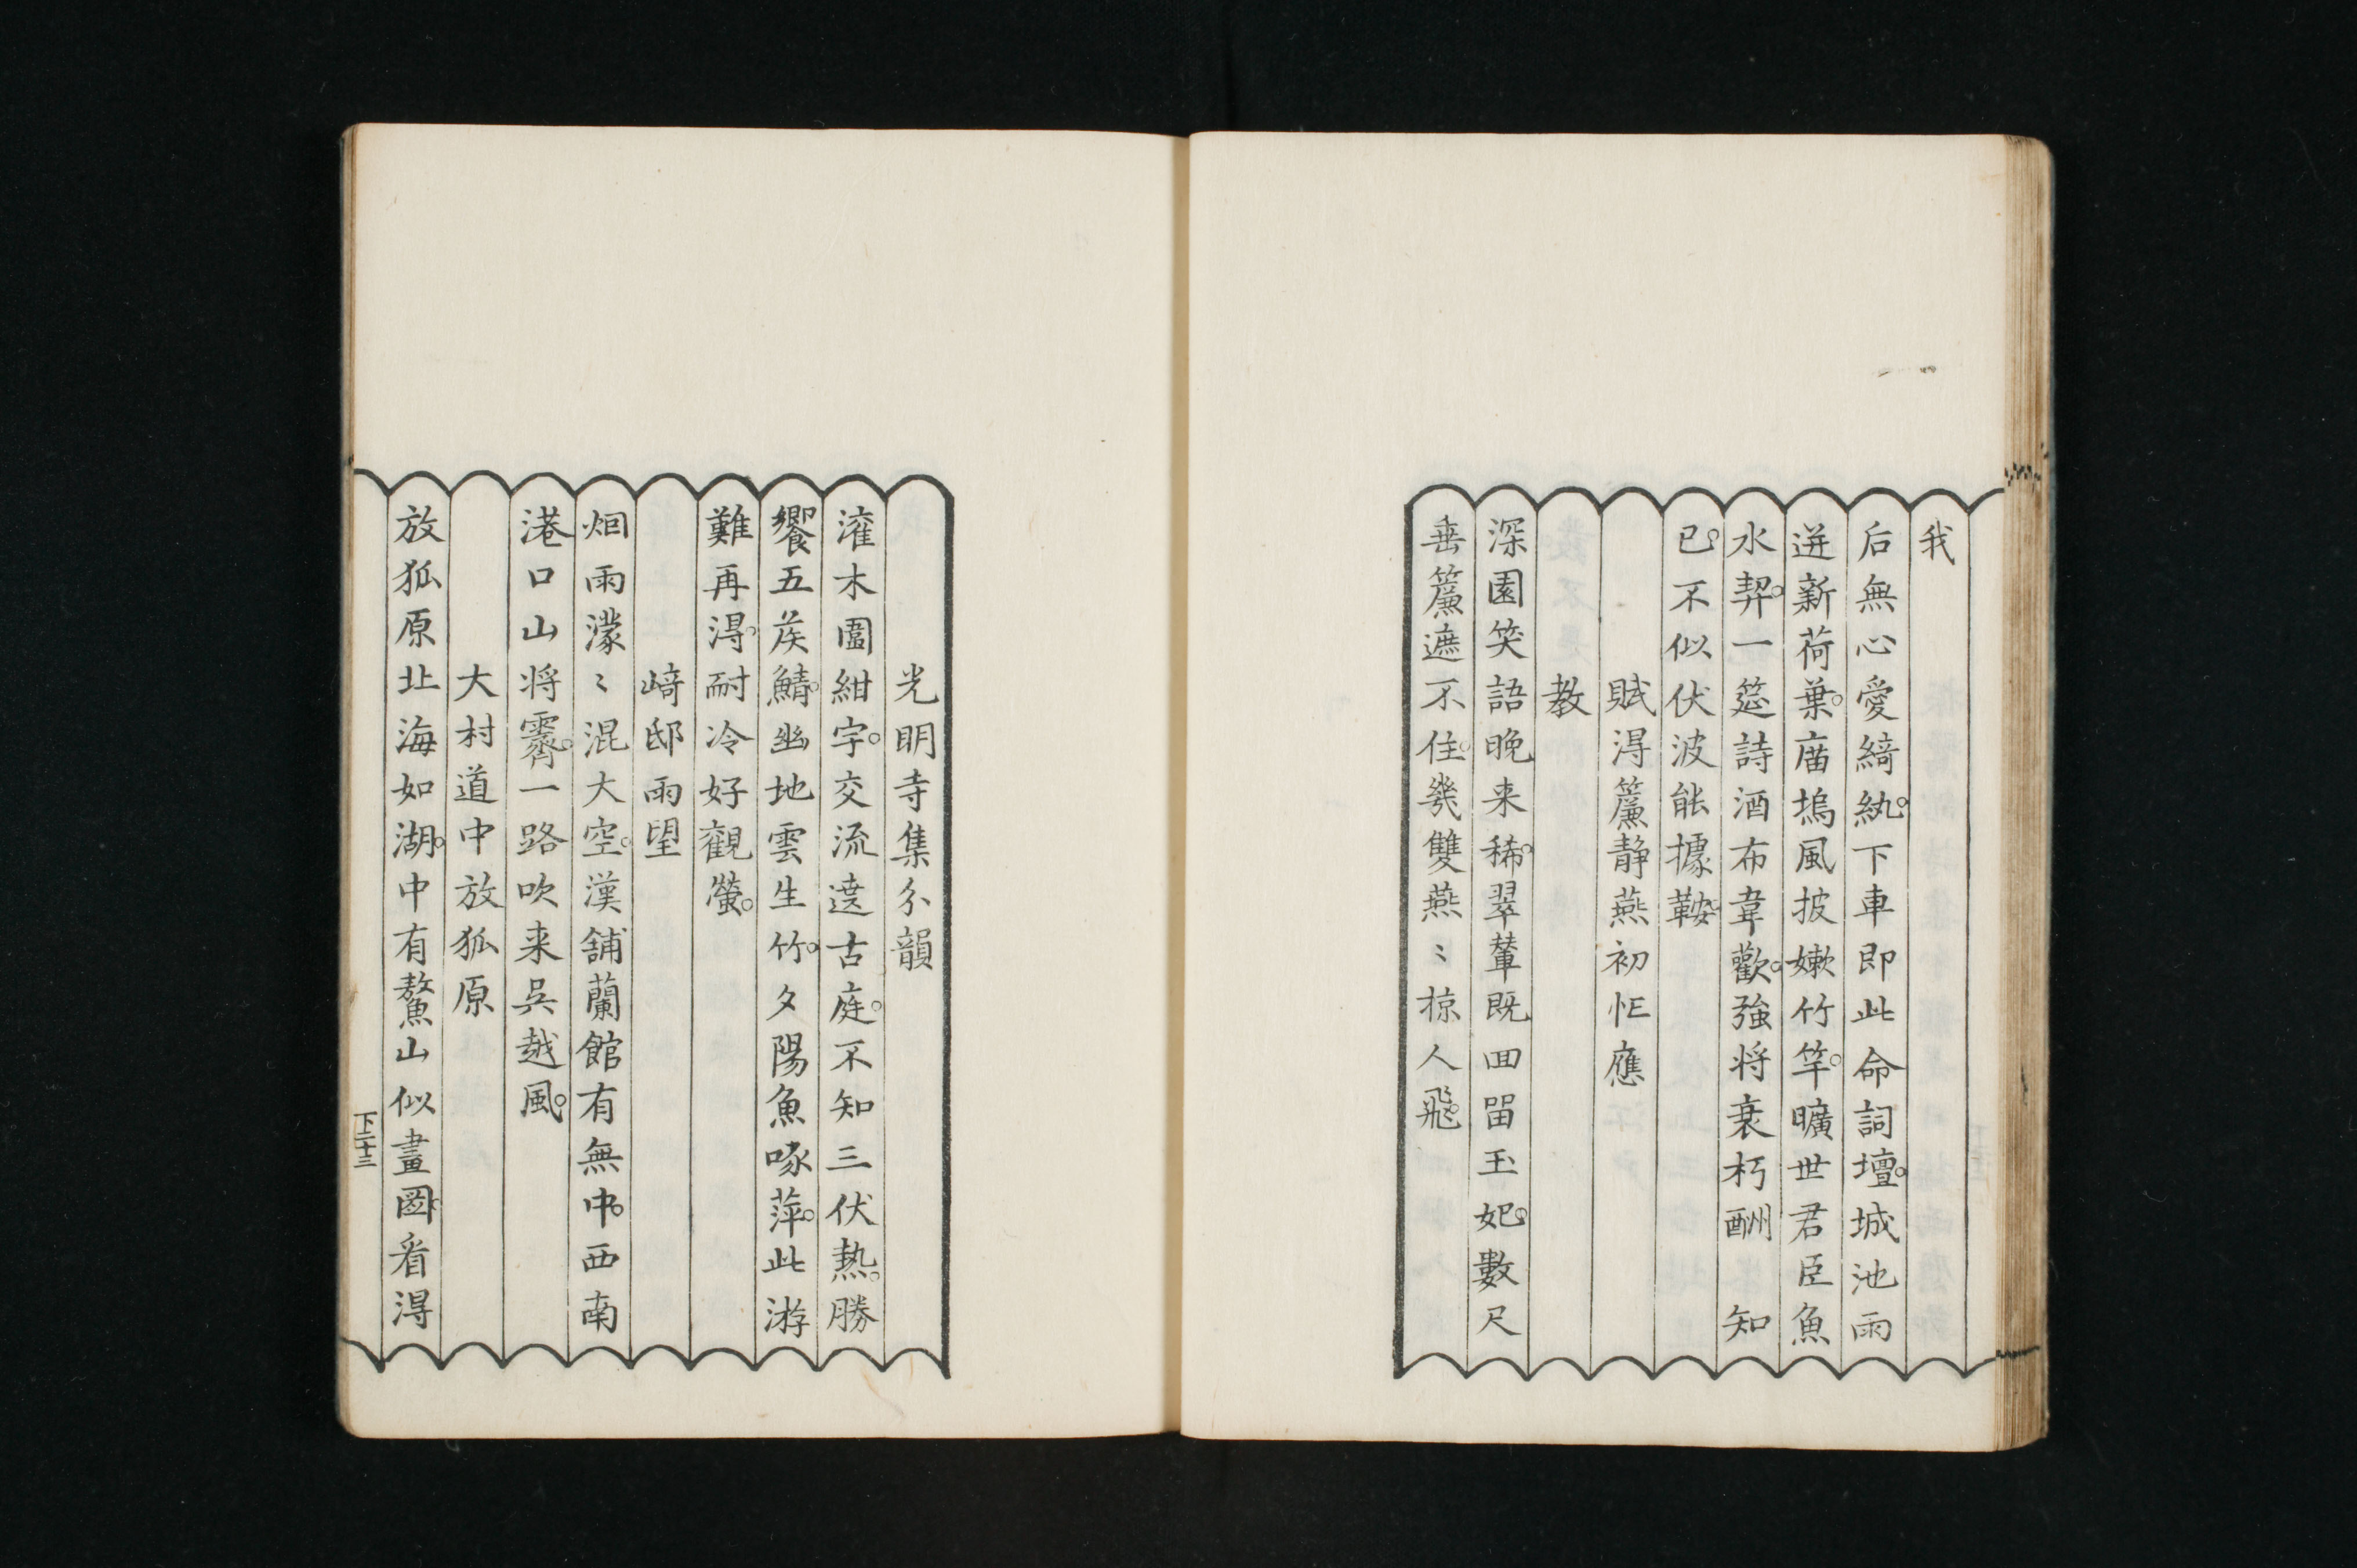 我
后無心愛綺紈。下車即此命詞壇。城池雨
迸新荷葉。庿塢風披嫩竹竿。曠世君臣魚
水契。一筵詩酒布韋歡。強将衰朽酬 知
已。不似伏波能據鞍。
賦得簾静燕初忙應
教
深園笑語晚来稀。翠輦既回留玉妃。數尺
垂簾遮不住。幾雙燕〻掠人飛。
光明寺集分韻
灌木圍紺宇。交流遶古庭。不知三伏熱。勝
饗五矦鯖。幽地雲生竹。夕陽魚啄萍。此游
難再得。耐冷好觀螢。
﨑邸雨望
烟雨濛〻混大空。漢舖蘭館有無中。西南
港口山将霽。一路吹来呉越風。
大村道中放狐原
放狐原北海如湖。中有鰲山似畫圖。看得
下二十三